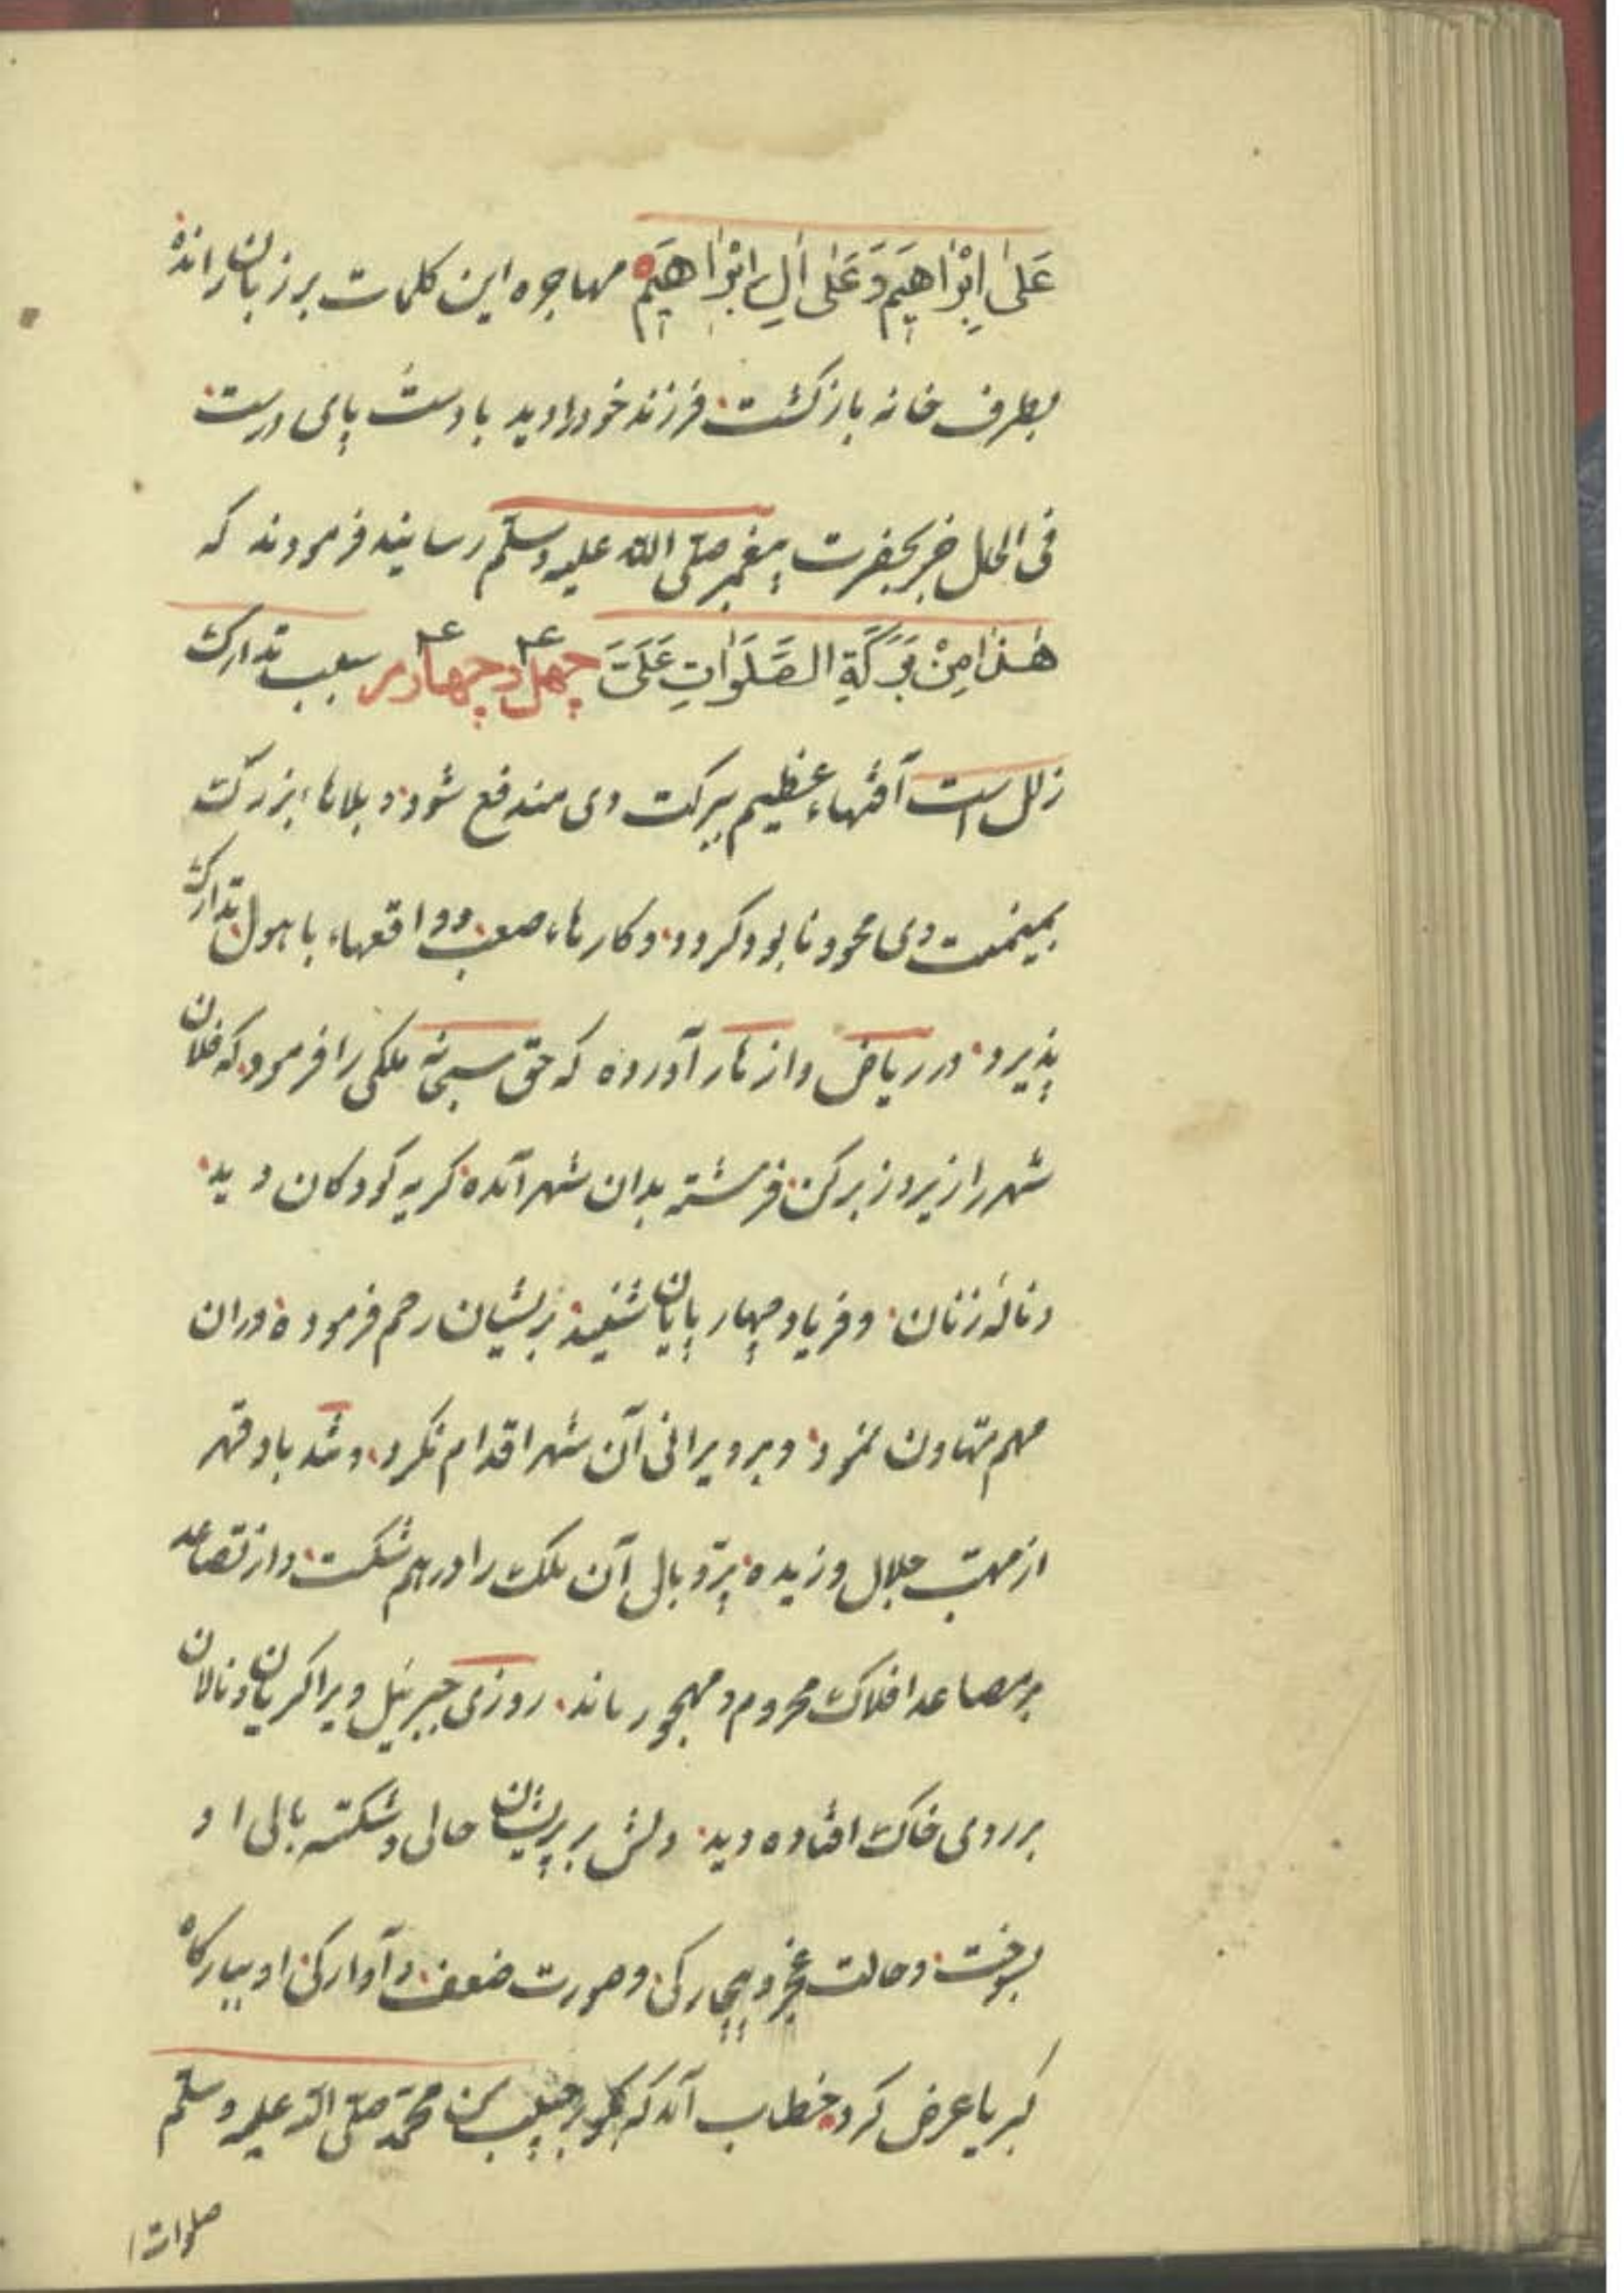 عَلىٰ اِبْرٰاهِيمَ وَعَلىٰ اٰلِ اِبْرٰاهِيمَ مهاجره این کلمات بر زبان رانده
بطرف خانه بازگشت فرزند خود را دید با دست پای درست
فی الحال خبر بحضرت پیغمبر صلی الله علیه وسلم رسانید فرمودند که
هٰذٰا مِنْ بَرَكَةِ الصَّلَوٰاتِ عَلَیَّ چهل و چهارم سبب تدارک
زلل است آفتهاء عظیم ببرکت وی مندفع شود و بلاهاء بزرگ
بمیمنت وی محو و نابود گردد و کارهاء صعب و واقعهاء با هول تدارک
پذیرد در ریاض و ازهار آورده که حق سبحانه ملکی را فرمود که فلان
شهر را زیر و زبر کن فرشته بدان شهر آمده گریه کودکان دید
و نالۀ زنان و فریاد چهارپایان شنید بریشان رحم فرموده در ان
مهم تهاون نمود و بر ویرانی آن شهر اقدام نکرد تندباد قهر
از مهب جلال وزیده پر و بال آن ملک را درهم شکست و از تصاعد
بر مصاعد افلاک محروم و مهجور ماند روزی جبرئیل ویرا گریان و نالان
بر روی خاک افتاده دید دلش بر پریشان حالی و شکسته بالی او
بسوخت و حالت عجز و بیچارگی و صورت ضعف و آوارگی او ببارگاه
کبریا عرض کرد خطاب آمد که بگو بر حبیب من محمد صلی الله علیه وسلم
صلوات